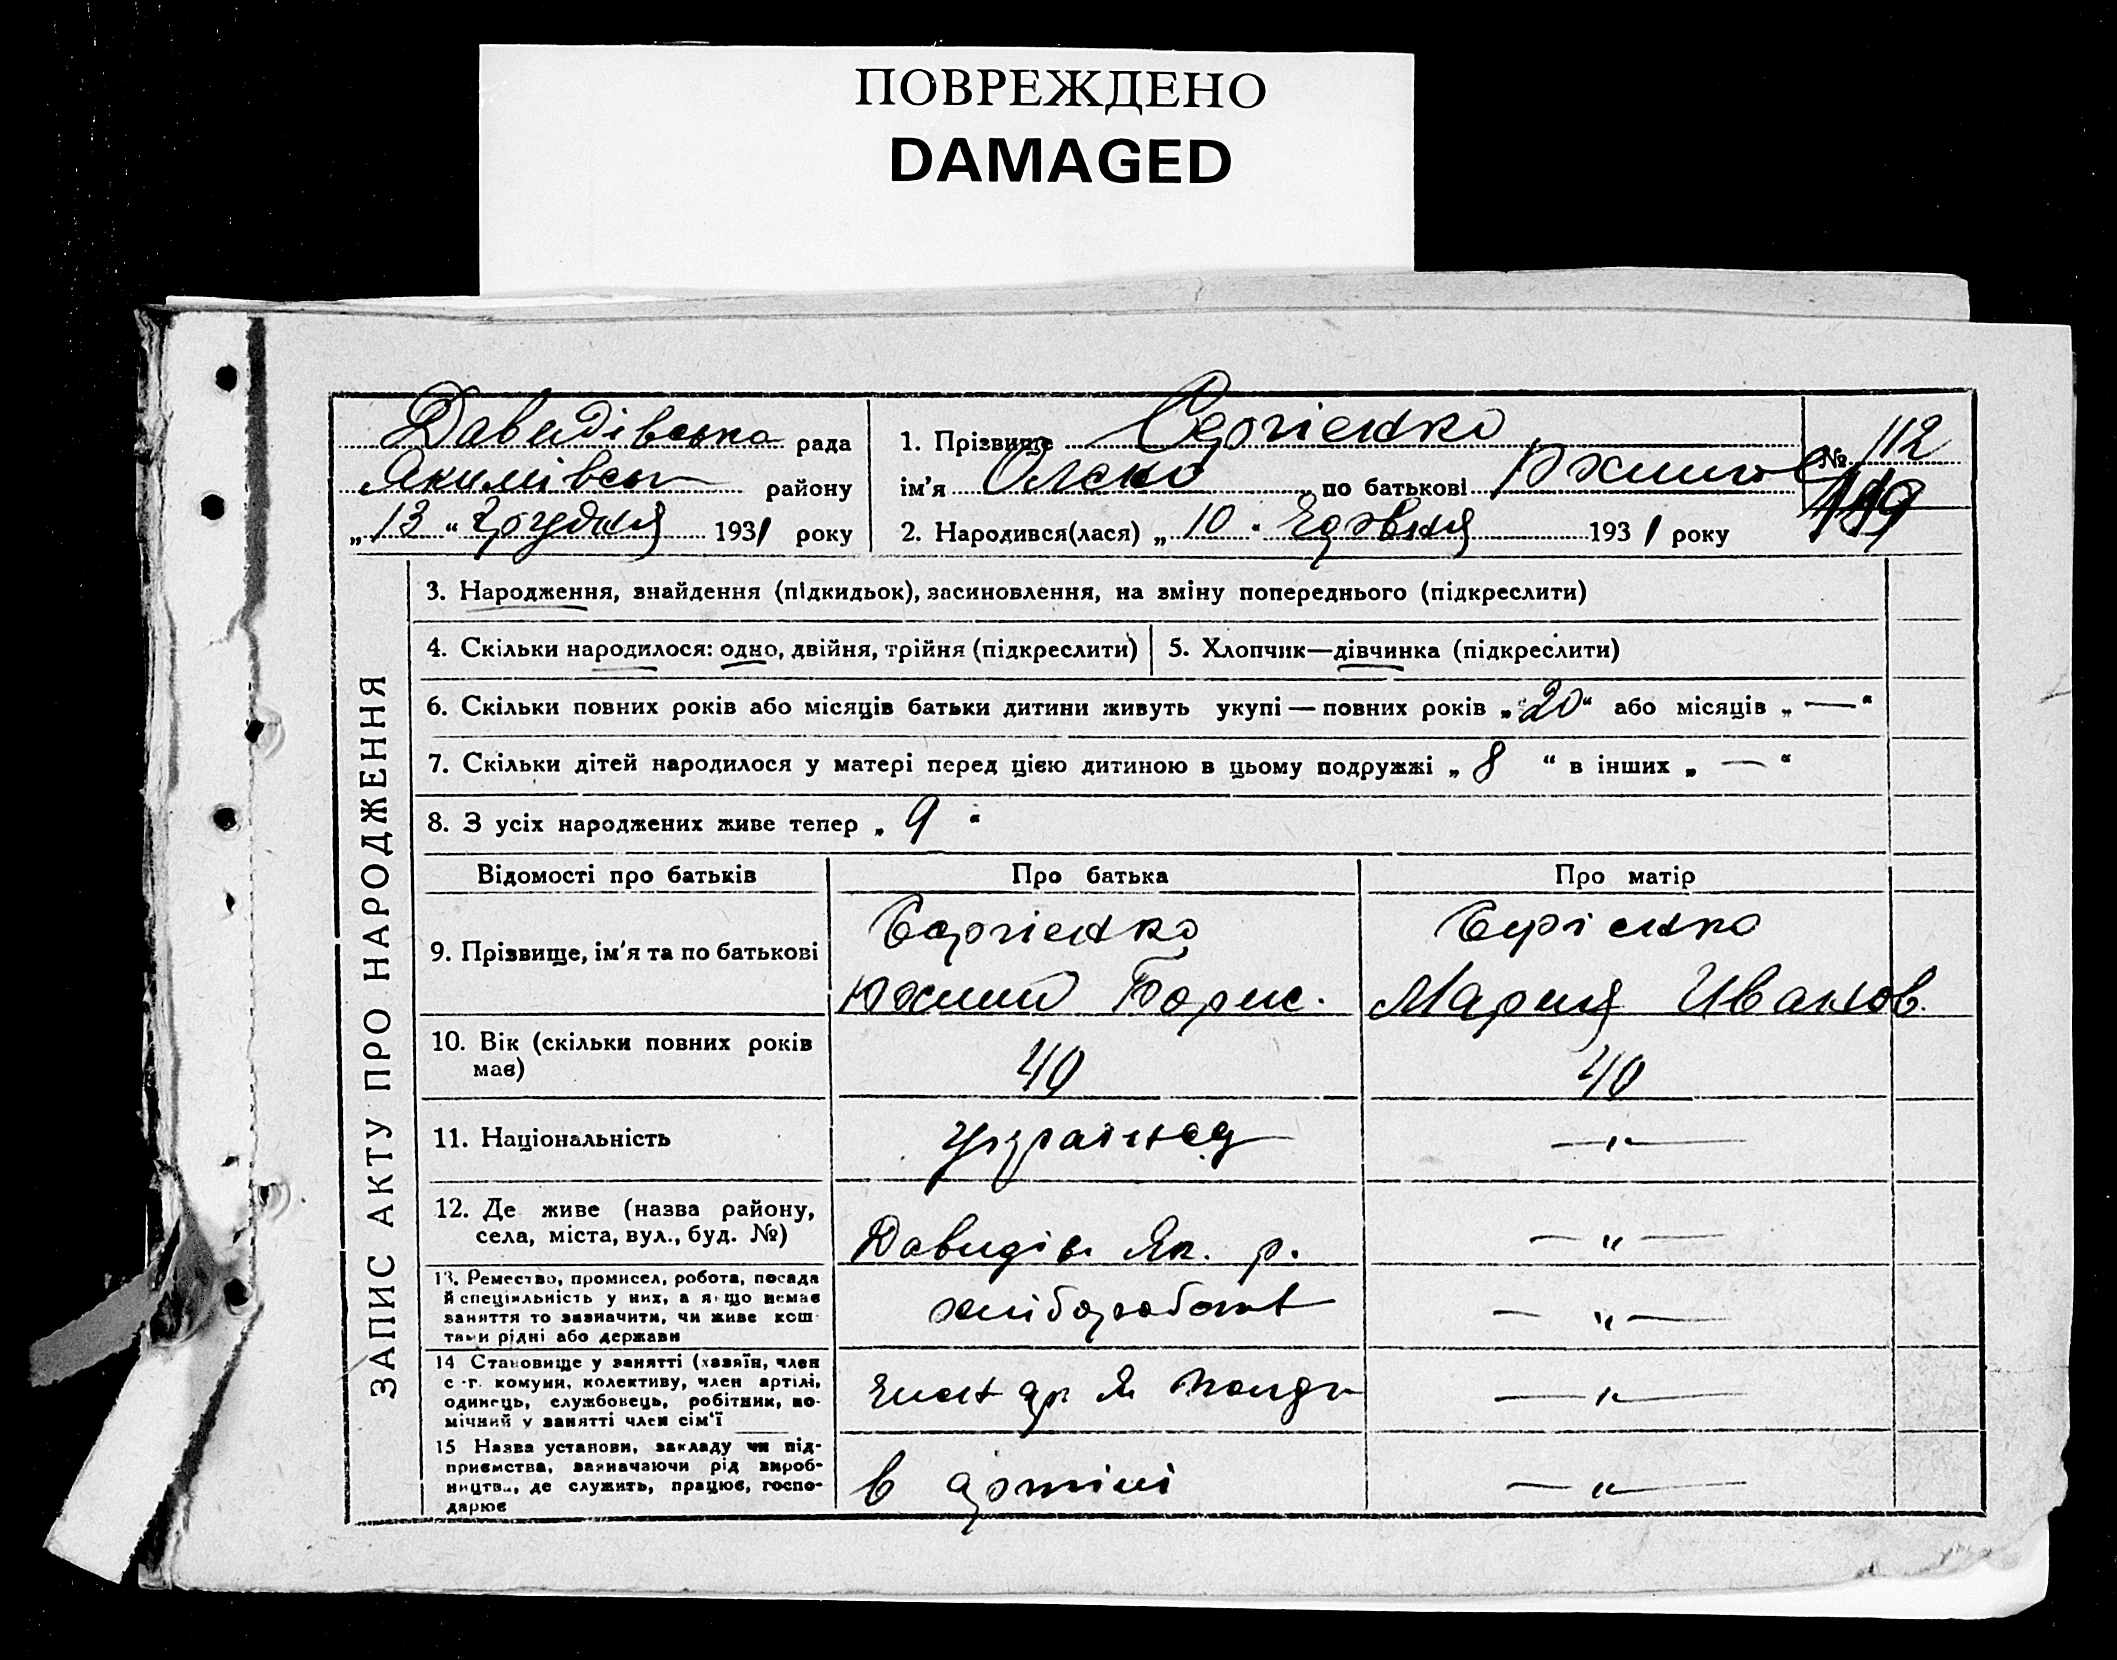 ПОВРЕЖДЕНО
DAMAGED
Давидівська рада
Якимівськ району
„13“ Грудня 1931 року
1. Прізвище Сергієнко
ім'я по батькові
2. Народився(лася) „10“ 1931 року
№ 112
119
ЗАПИС АКТУ ПРО НАРОДЖЕННЯ
3. Народження, знайдення (підкидьок), засиновлення, на зміну попереднього (підкреслити)
4. Скільки народилося: одно, двійня, трійня (підкреслити)
5. Хлопчик—дівчинка (підкреслити)
6. Скільки повних років або місяців батьки дитини живуть укупі — повних років „20“ або місяців „—“
7. Скільки дітей народилося у матері перед цією дитиною в цьому подружжі „8“ в інших „—“
8. З усіх народжених живе тепер „9“
Відомості про батьків
Про батька
Про матір
9. Прізвище, ім'я та по батькові
Сергієнко
Юхим Борис.
Сергієнко
Мария Иванов.
10. Вік (скільки повних років
має)
40
40
11. Національність
—„—
12. Де живе (назва району,
села, міста, вул., буд. №)
Давидів. Як. р.
—„—
13. Ремество, промисел, робота, посада
й спеціяльність у них, а якщо немає
заняття то зазначити, чи живе кош-
тами рідні або держави
хлібороб
—„—
14 Становище у занятті (хазяїн, член
с.-г. комуни, колективу, член артілі,
одинець, службовець, робітник, по-
мічний у занятті член сім'ї
—„—
15 Назва установи, закладу чи під-
приємства, зазначаючи рід вироб-
ництва, де служить, працює, госпо-
дарює
в артілі
—„—